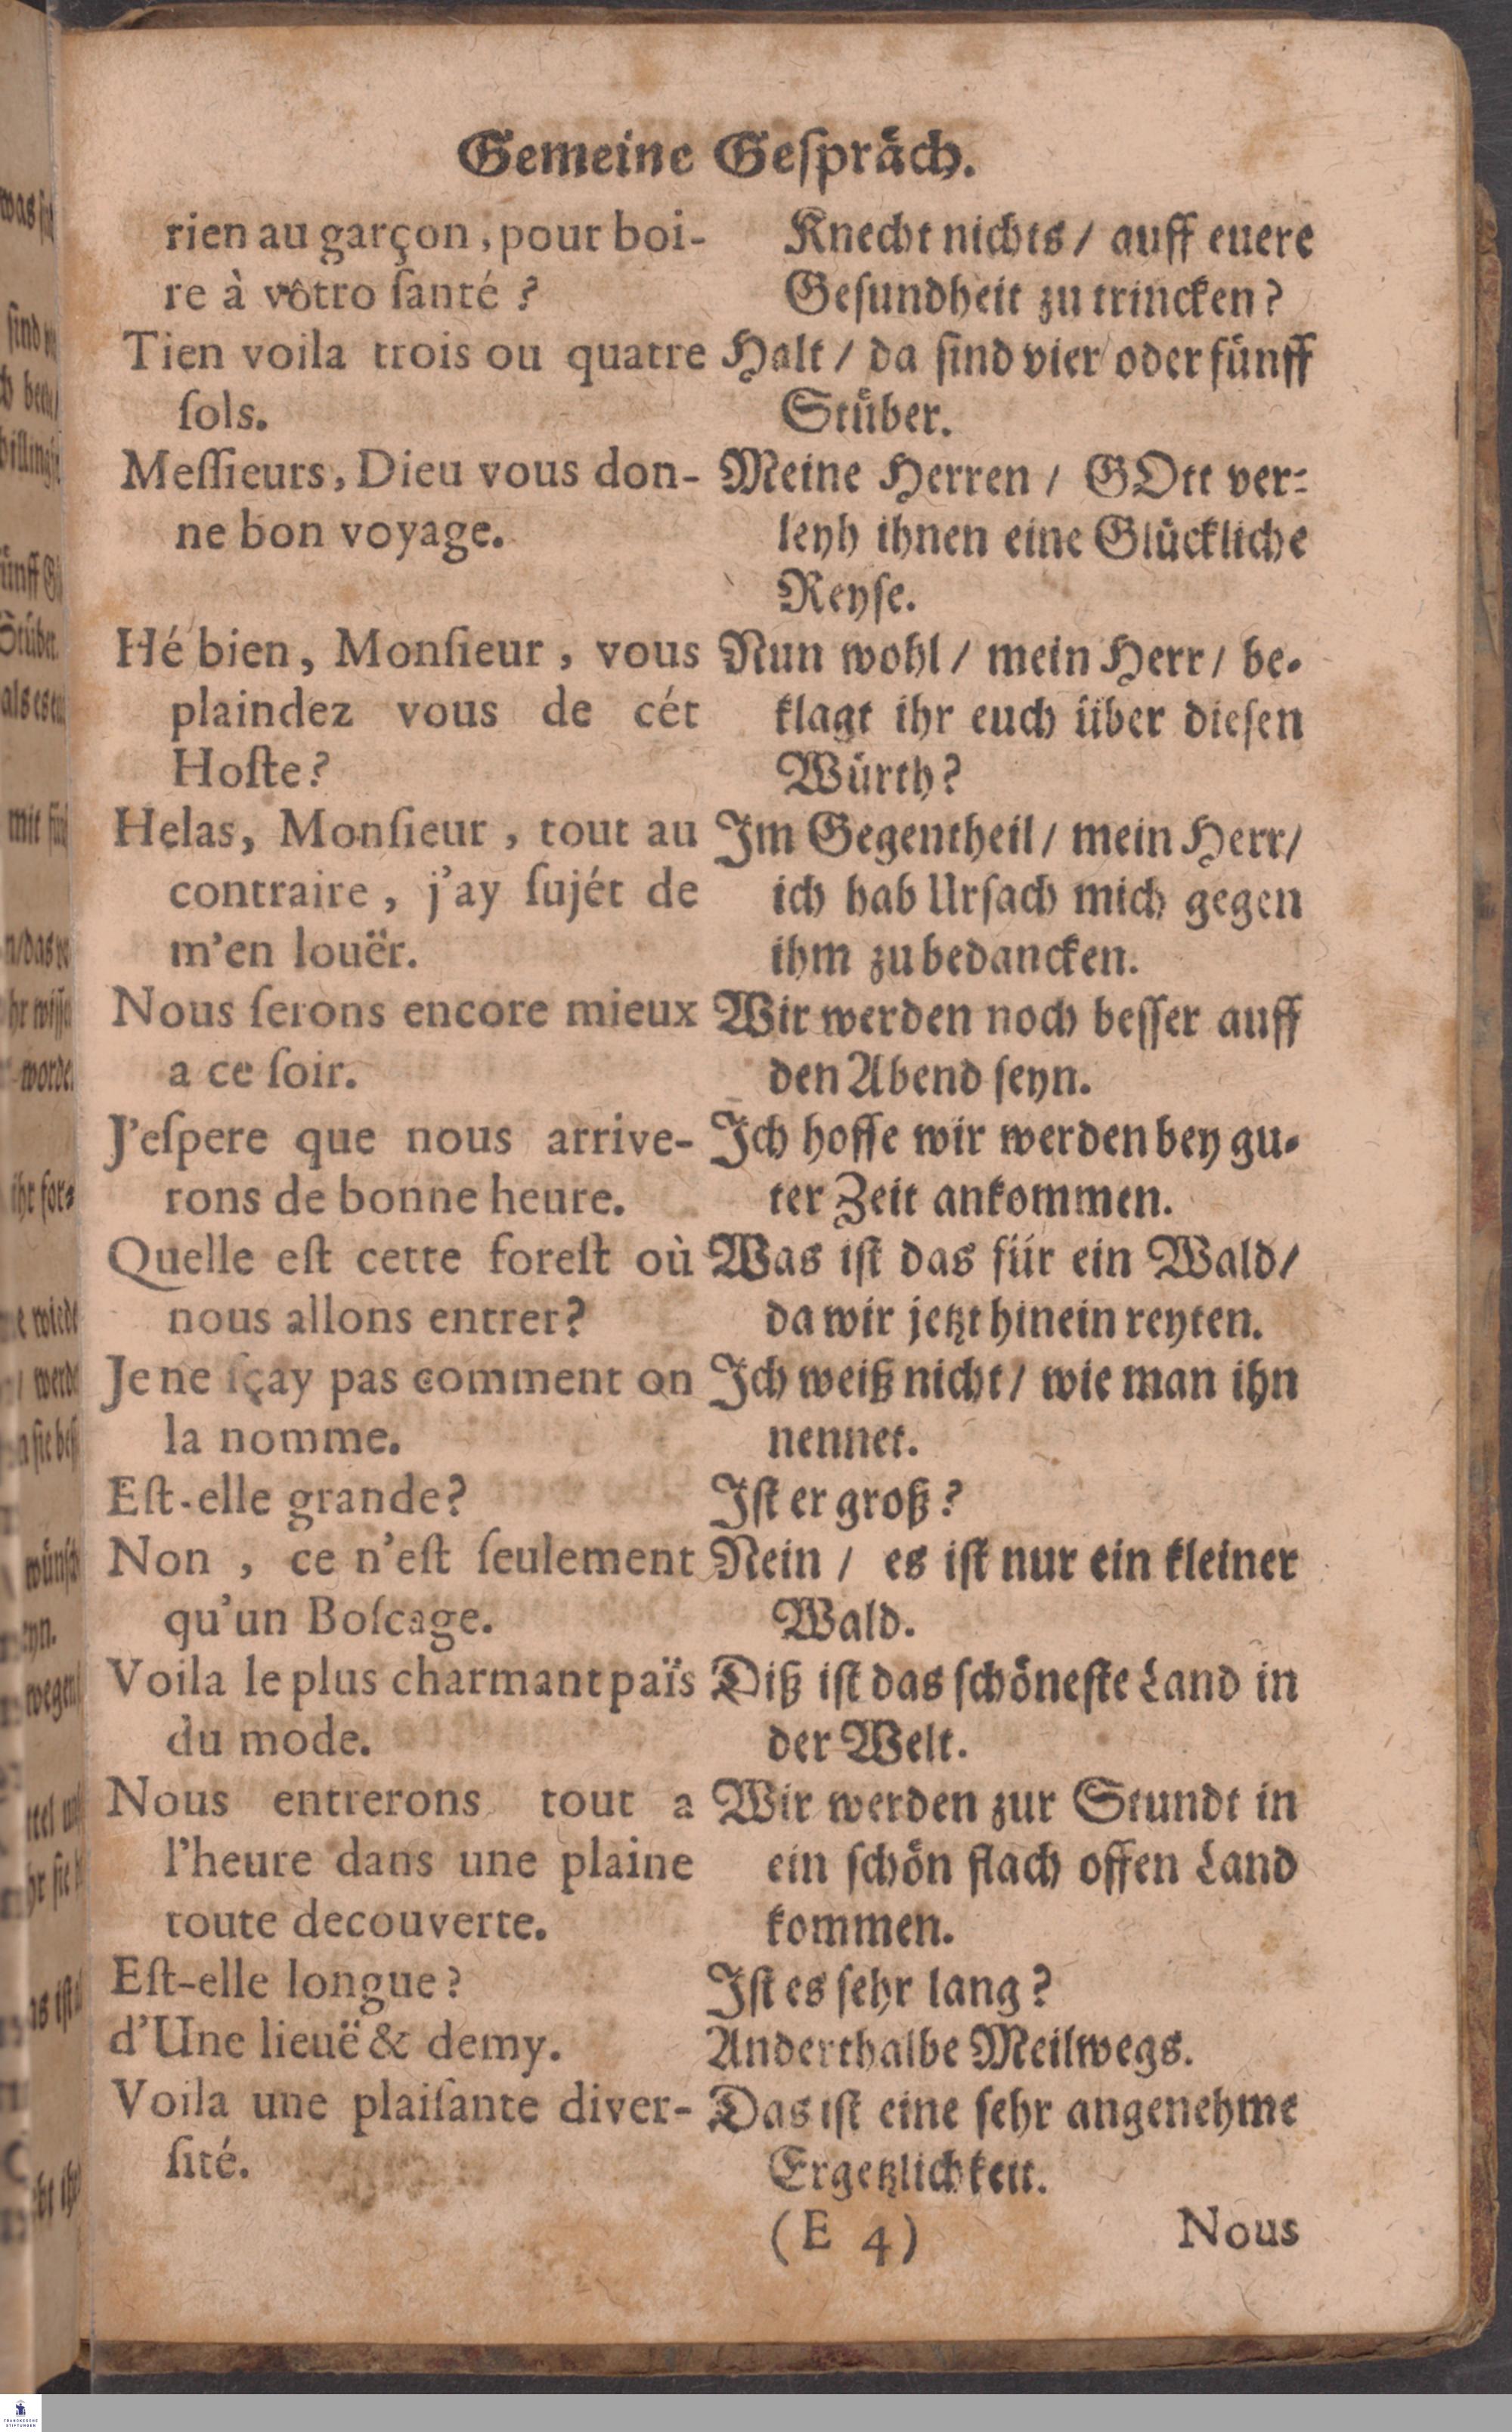 Gemeine Geſpräch.
rien au garçon, pour boi-
re à vôtro ſanté?
Tien voila trois ou quatre
ſols.
Meſſieurs, Dieu vous don-
ne bon voyage.
Hé bien, Monſieur, vous
plaindez vous de cét
Hoſte?
Helas, Monſieur, tout au
contraire, j'ay ſujét de
m'en louër.
Nous ſerons encore mieux
a ce ſoir.
J'eſpere que nous arrive-
rons de bonne heure.
Quelle eſt cette foreſt où
nous allons entrer?
Je ne ſçay pas comment on
la nomme.
Eſt-elle grande?
Non, ce n'eſt ſeulement
qu'un Boſcage.
Voila le plus charmant païs
du mode.
Nous entrerons tout a
l'heure dans une plaine
toute decouverte.
Eſt-elle longue?
d'Une lieuë & demy.
Voila une plaiſante diver-
ſité.
Knecht nichts / auff euere
Geſundheit zu trincken?
Halt / da ſind vier oder fünff
Stüber.
Meine Herren / GOtt ver-
leyh ihnen eine Glückliche
Reyſe.
Nun wohl / mein Herr / be-
klagt ihr euch über dieſen
Würth?
Im Gegentheil / mein Herr /
ich hab Urſach mich gegen
ihm zu bedancken.
Wir werden noch beſſer auff
den Abend ſeyn.
Ich hoffe wir werden bey gu-
ter Zeit ankommen.
Was iſt das für ein Wald /
da wir jetzt hinein reyten.
Ich weiß nicht / wie man ihn
nennet.
Iſt er groß?
Nein / es iſt nur ein kleiner
Wald.
Diß iſt das ſchöneſte Land in
der Welt.
Wir werden zur Stundt in
ein ſchön flach offen Land
kommen.
Iſt es ſehr lang?
Anderthalbe Meilwegs.
Das iſt eine ſehr angenehme
Ergetzlichkeit.
(E 4)
Nous
FRANCKESCHE
STIFTUNGEN